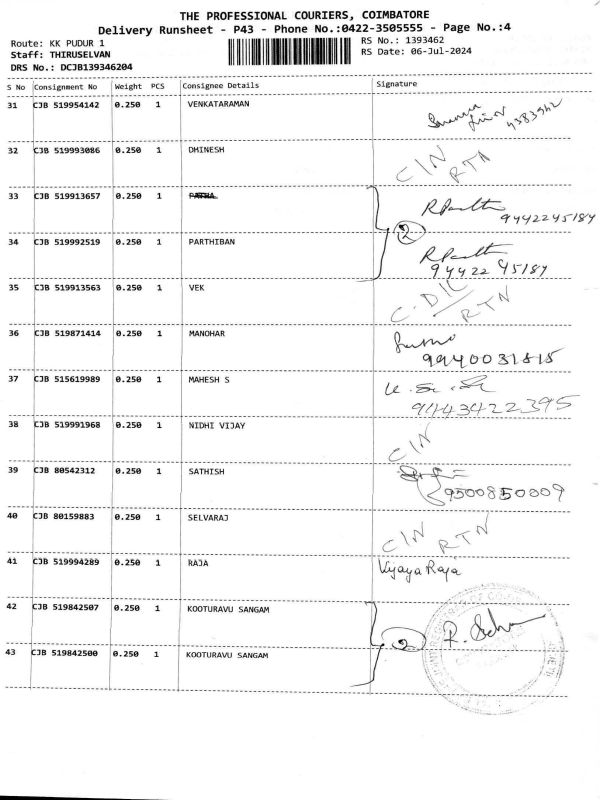 THE PROFESSIONAL COURIERS, COIMBATORE
Delivery Runsheet - P43 - Phone No.:0422-3505555 - Page No.:4
Route: KK PUDUR 1 RS No.: 1393462
Staff: THIRUSELVAN RS Date: 06-Jul-2024
DRS No.: DCJB139346204
S No Consignment No Weight PCS Consignee Details Signature
31 CJB 519954142 0.250 1 VENKATARAMAN
32 CJB 519993086 0.250 1 DHINESH C/N RTN
33 CJB 519913657 0.250 1 9442245184
2
34 CJB 519992519 0.250 1 PARTHIBAN
9442245184
35 CJB 519913563 0.250 1 VEK C.D/C RTN
36 CJB 519871414 0.250 1 MANOHAR
9940031815
37 CJB 515619989 0.250 1 MAHESH S
9443422395
38 CJB 519991968 0.250 1 NIDHI VIJAY C/N
39 CJB 80542312 0.250 1 SATHISH
9500850009
40 CJB 80159883 0.250 1 SELVARAJ C/N RTN
41 CJB 519994289 0.250 1 RAJA Vijaya Raja
42 CJB 519842507 0.250 1 KOOTURAVU SANGAM
2
43 CJB 519842500 0.250 1 KOOTURAVU SANGAM